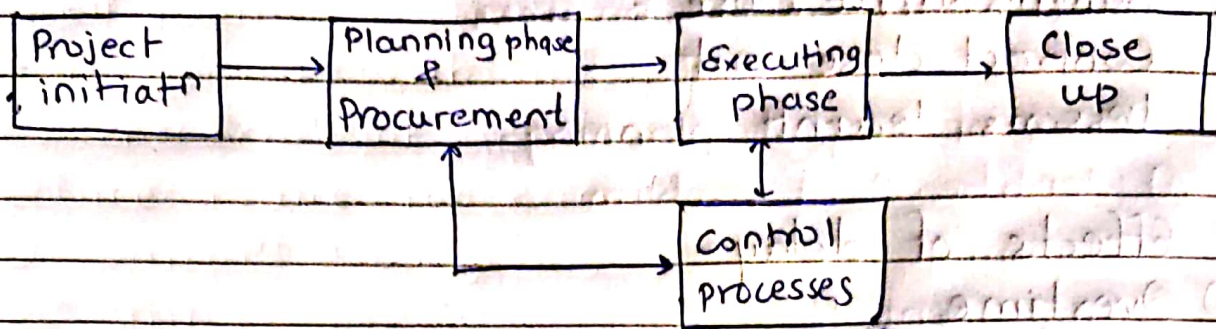 Project
initiatn
Planning phase
&
Procurement
Executing
phase
Close
up
Controll
processes